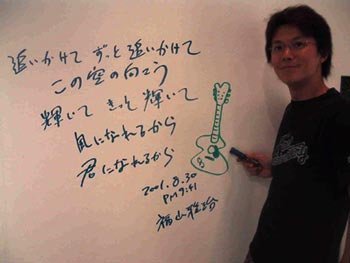 追いかけて ずっと追いかけて
この空の向こう
輝いて きっと輝いて
風になれるから
君になれるから
2001.8.30
PM9:41
福山雅治